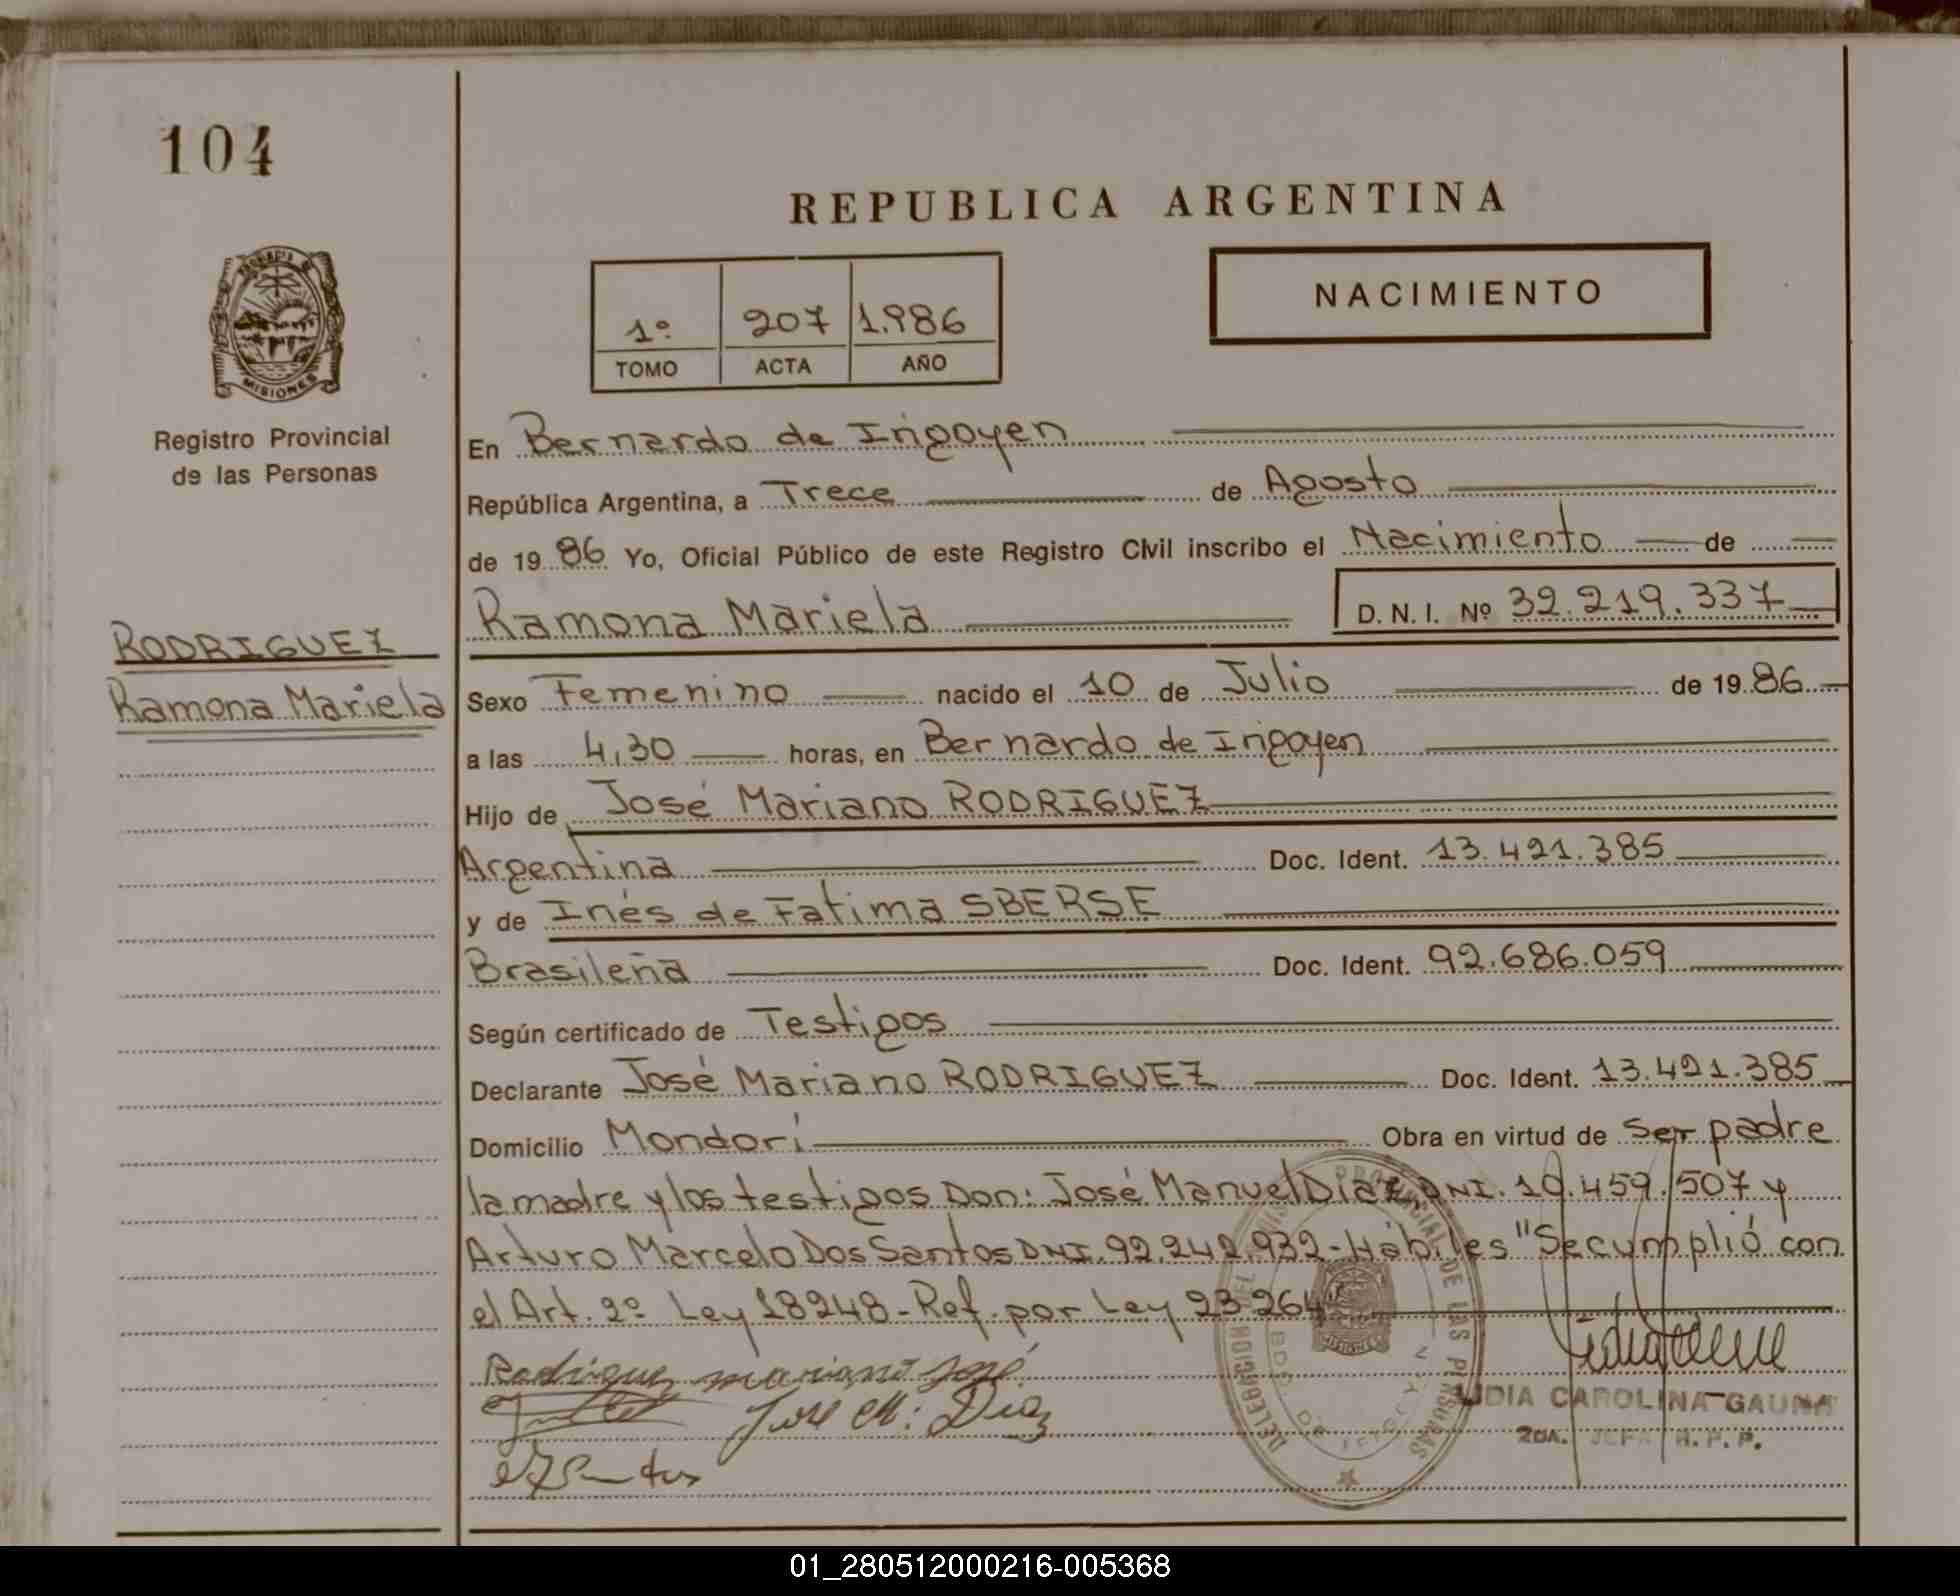 104
REPUBLICA ARGENTINA
NACIMIENTO
1º 207 1.986
TOMO ACTA AÑO
MISIONES
Registro Provincial
de las Personas
RODRIGUEZ
Ramona Mariela
En Bernardo de Irigoyen
República Argentina, a Trece de Agosto
de 1986 Yo, Oficial Público de este Registro Civil inscribo el Nacimiento de
Ramona Mariela D.N.I. Nº 32.219.337
Sexo Femenino nacido el 10 de Julio de 1986
a las 4,30 horas, en Bernardo de Irigoyen
Hijo de José Mariano RODRIGUEZ
Argentina Doc. Ident. 13.421.385
y de Inés de Fatima SBERSE
Brasileña Doc. Ident. 92.686.059
Según certificado de Testigos
Declarante José Mariano RODRIGUEZ Doc. Ident. 13.421.385
Domicilio Mondorí Obra en virtud de ser padre
la madre y los testigos Don: José Manuel Diaz, DNI. 10.459.507 y
Arturo Marcelo Dos Santos DNI. 92.242.932 - Hábiles "Se cumplió con
el Art. 2º Ley 18248 - Ref. por Ley 23264"
Rodriguez mariano José
José M. Diaz
DELEGACION DEL PROVINCIAL DE LAS PERSONAS
MISIONES
LIDIA CAROLINA GAUNA
2DA. JEFA R. P. P.
01_280512000216-005368